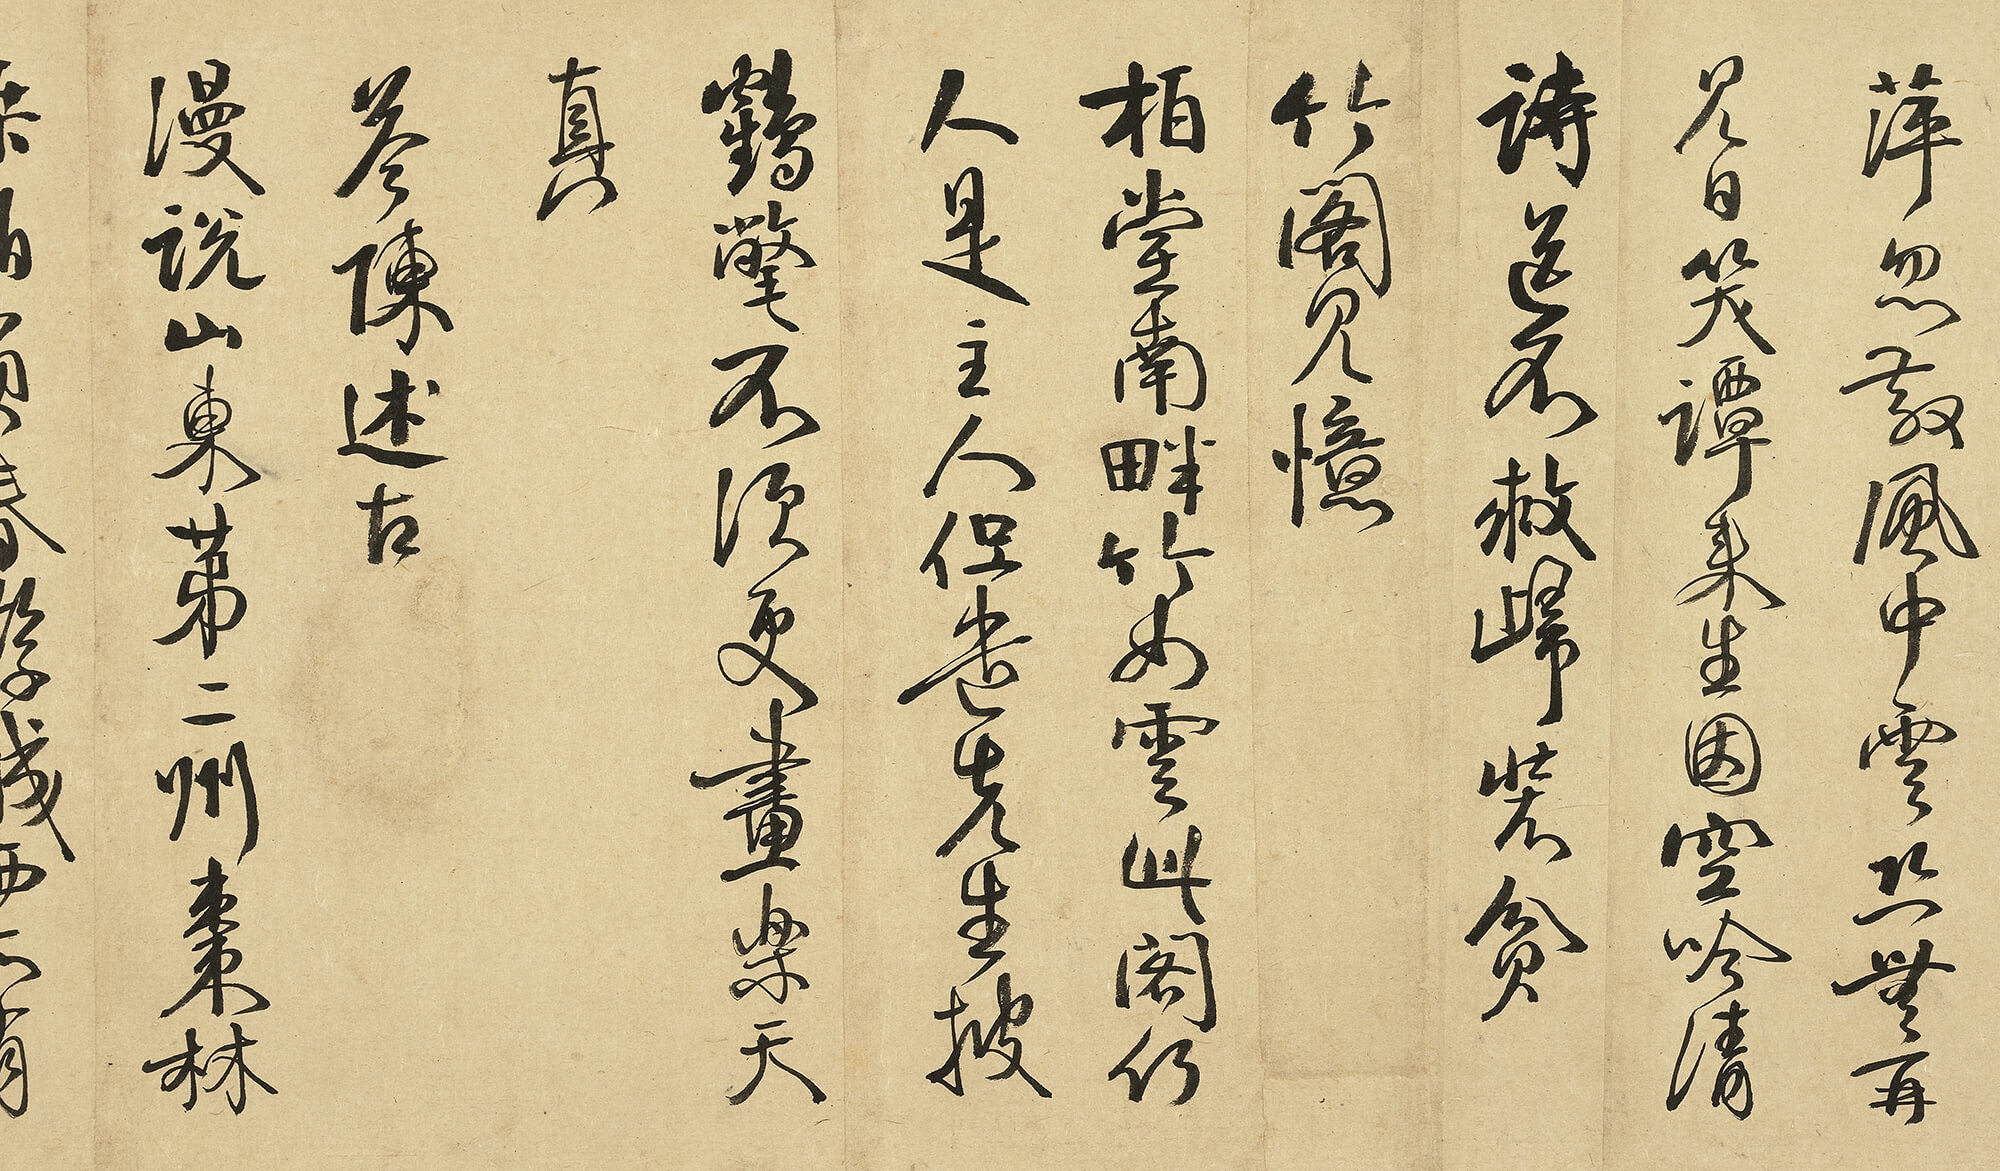 萍忽散風中雲恐無再
見日笑譚來生因空吟清
詩送不救歸裝貧
竹閣見憶
柏堂南畔竹如雲此閣何
人是主人但遣先生披
鶴氅不須更畫樂天
真
答陳述古
漫說山東第二州棗林
桑泊負春游城西亦有